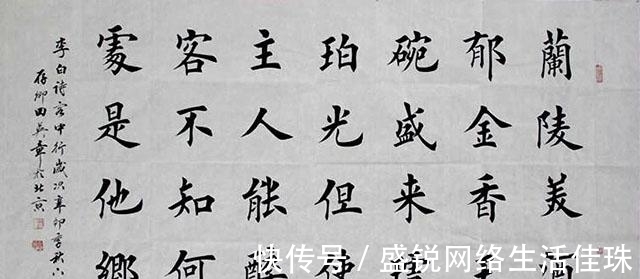 蘭陵美
郁金香
碗盛来
珀光但使
主人能醉
客不知何
處是他鄉
李白诗客中行歲次辛卯季秋
存卿田英章於北京
快传号 / 盛锐网络生活佳珠